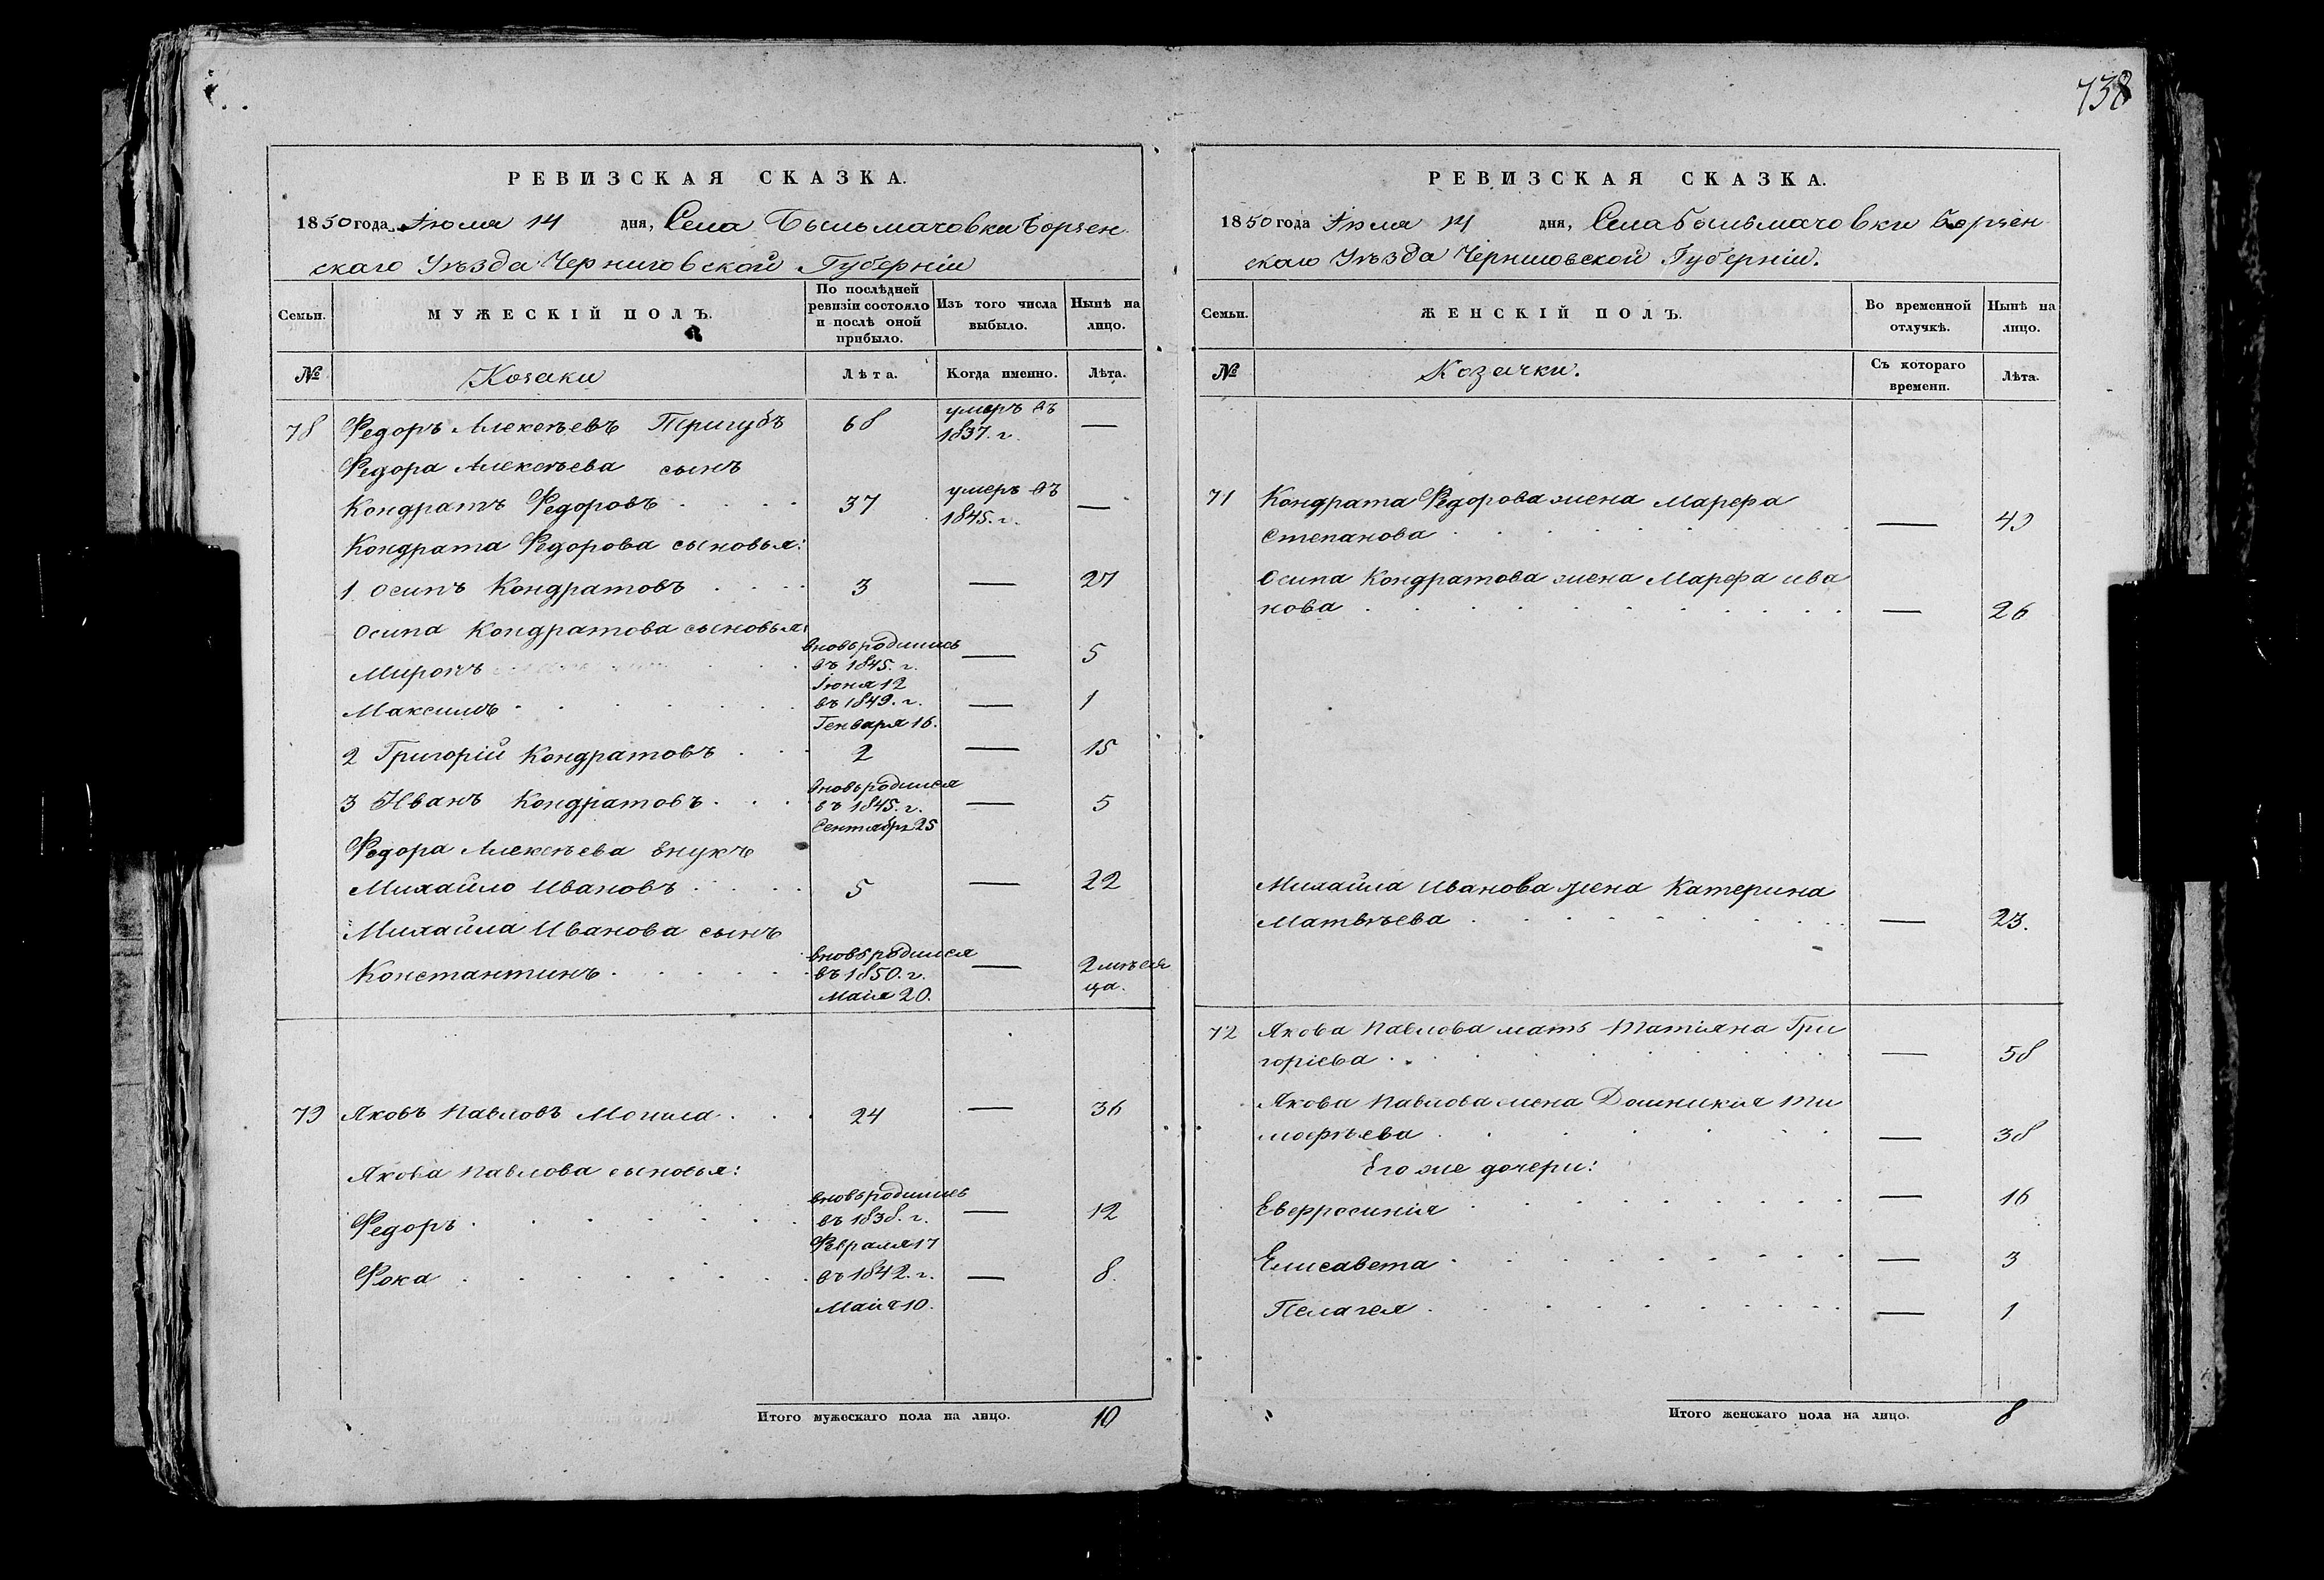 738
РЕВИЗСКАЯ СКАЗКА.
1850 года Іюля 14 дня, Села Быльмачовки Борзен
скаго Уѣзда Черниговской Губерніи
Семьи.
МУЖЕСКІЙ ПОЛЪ.
По послѣдней ревизіи состояло и послѣ оной прибыло.
Изъ того числа выбыло.
Нынѣ на лицо.
№
Козаки
Лѣта.
Когда именно.
Лѣта.
78 Федоръ Алексѣевъ Пригубъ 68 умеръ въ 1837. г. —
Федора Алексѣева сынъ
Кондратъ Федоровъ 37 умеръ въ 1845. г. —
Кондрата Федорова сыновья:
1 Осипъ Кондратовъ 3 — 27
Осипа Кондратова сыновья:
Миронъ вновь родились въ 1845. г. Іюня 12 — 5
Максимъ въ 1849. г. Генваря 16. — 1
2 Григорій Кондратовъ 2 — 15
3 Иванъ Кондратовъ вновь родился въ 1845. г. Сентября 25 — 5
Федора Алексѣева внукъ
Михайло Ивановъ 5 — 22
Михайла Иванова сынъ
Константинъ вновь родился въ 1850. г. Маія 20. — 2 мѣсяца.
79 Яковъ Павловъ Могила 24 — 36
Якова Павлова сыновья:
Федоръ вновь родились въ 1838. г. Февраля 17 — 12
Фока въ 1842. г. Маія 10. — 8.
Итого мужескаго пола на лицо. 10
РЕВИЗСКАЯ СКАЗКА.
1850 года Іюля 14 дня, Села Быльмачовки Борзен
скаго Уѣзда Черниговской Губерніи.
Семьи.
ЖЕНСКІЙ ПОЛЪ.
Во временной отлучкѣ.
Нынѣ на лицо.
№
Козачки.
Съ котораго времени.
Лѣта.
71 Кондрата Федорова жена Марефа
Степанова — 49
Осипа Кондратова жена Марефа ива
нова — 26
Михайла Иванова жена Катерина
Матвѣева — 23.
72 Якова Павлова мать Татіяна Гри
горіева — 58
Якова Павлова жена Домникія Ти
мофѣева — 38
Его же дочери:
Евфросинія — 16
Елисавета — 3
Пелагея — 1
Итого женскаго пола на лицо. 8